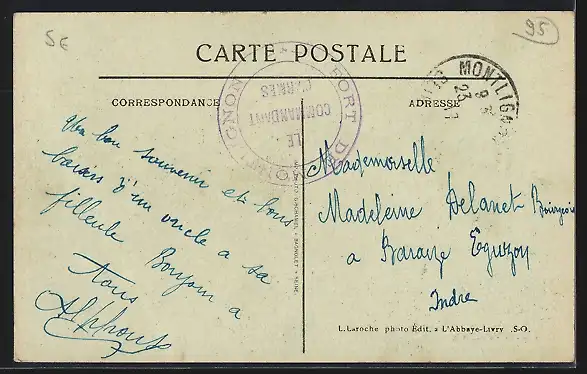 5€
95
CARTE POSTALE
CORRESPONDANCE
ADRESSE
FORT DE MONTLIGNON
LE
COMMANDANT
D'ARMES
MONTLIGNON
23
Un bon souvenir et bons
baisers d'un oncle a sa
filleule Bonjour a
tous
Alphonse
Mademoiselle
Madeleine Delanet Bourgeois
a Baraize Eguzon
Indre
L. Laroche photo Édit. a L'Abbaye-Livry .S-O.